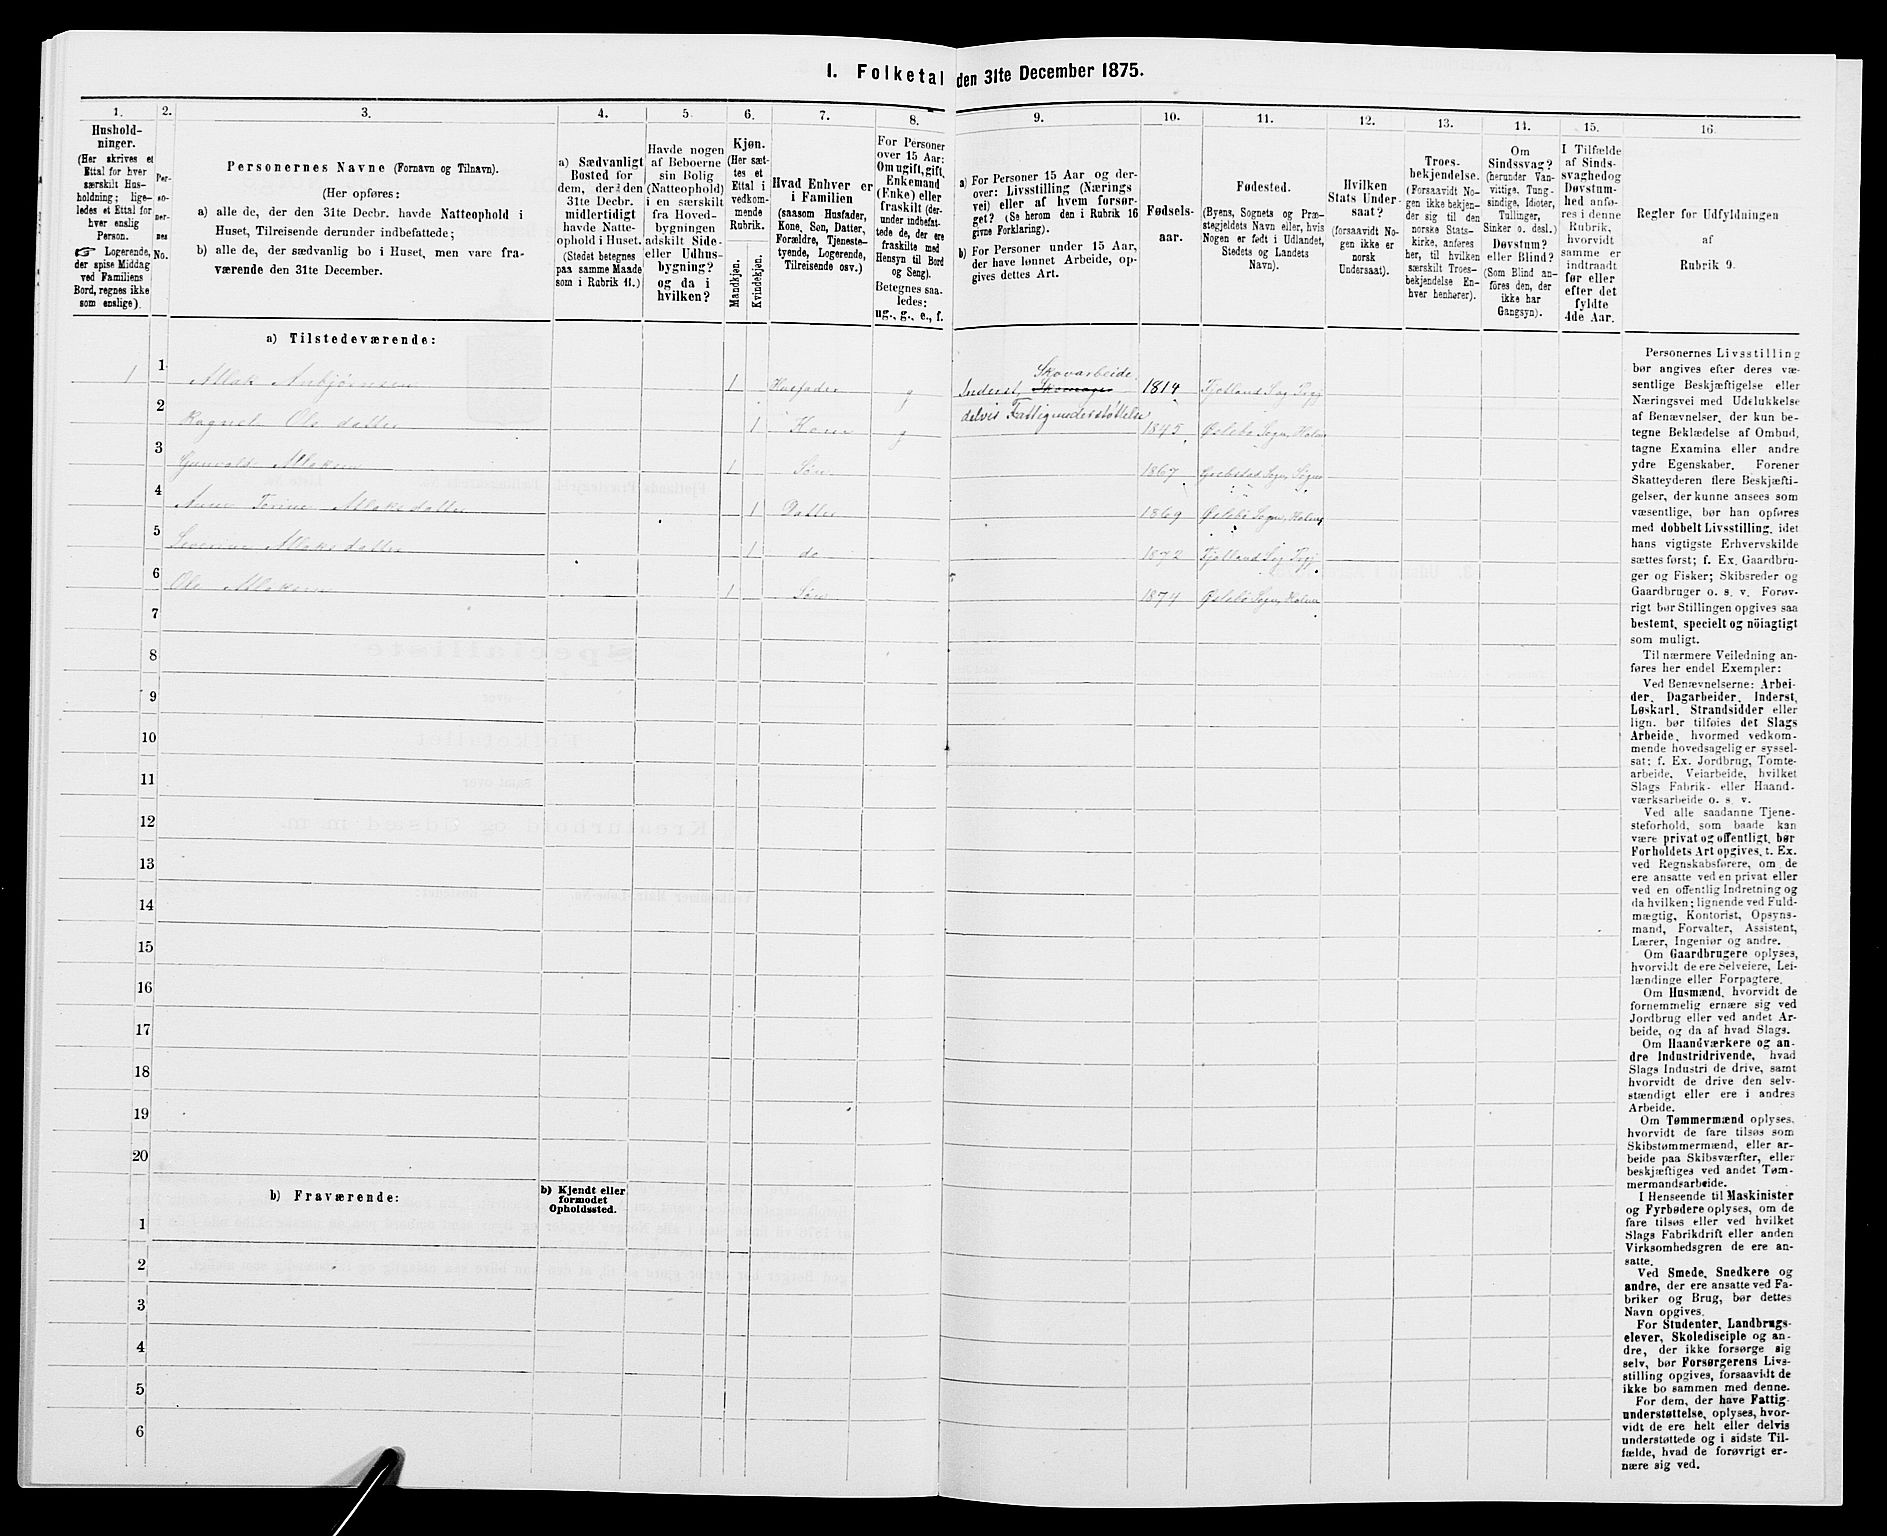 I. Folketal den 31te December 1875.
1.
Hushold-
ninger.
(Her skrives et
Ettal for hver
særskilt Hus-
holdning; lige-
ledes et Ettal for
hver enslig
Person.
☞ Logerende,
der spise Middag
ved Familiens
Bord, regnes ikke
som enslige).
2.
Per-
so-
ner-
nes
No.
3.
Personernes Navne (Fornavn og Tilnavn).
(Her opføres:
a) alle de, der den 31te Decbr. havde Natteophold i
Huset, Tilreisende derunder indbefattede;
b) alle de, der sædvanlig bo i Huset, men vare fra-
værende den 31te December.
4.
a) Sædvanligt
Bosted for
dem, der den
31te Decbr.
midlertidigt
havde Natte-
ophold i Huset.
(Stedet betegnes
paa samme Maade
som i Rubrik 11.)
5.
Havde nogen
af Beboerne
sin Bolig
(Natteophold)
i en særskilt
fra Hoved-
bygningen
adskilt Side-
eller Udhus-
bygning?
og da i
hvilken?
6.
Kjøn.
(Her sæt-
tes et
Ettal i
vedkom-
mende
Rubrik.
Mandkjøn.
Kvindekjøn.
7.
Hvad Enhver er
i Familien
(saasom Husfader,
Kone, Søn, Datter,
Forældre, Tjeneste-
tyende, Logerende,
Tilreisende osv.)
8.
For Personer
over 15 Aar:
Om ugift, gift,
Enkemand
(Enke) eller
fraskilt (der-
under indbefat-
tede de, der ere
fraskilte med
Hensyn til Bord
og Seng).
Betegnes saa-
ledes:
ug., g., e., f.
9.
a) For Personer 15 Aar og der-
over: Livsstilling (Nærings
vei) eller af hvem forsør-
get? (Se herom den i Rubrik 16
givne Forklaring).
b) For Personer under 15 Aar,
der have lønnet Arbeide, op-
gives dettes Art.
10.
Fødsels-
aar.
11.
Fødested.
(Byens, Sognets og Præ-
stegjeldets Navn eller, hvis
Nogen er født i Udlandet,
Stedets og Landets
Navn).
12.
Hvilken
Stats Under
saat?
(forsaavidt No-
gen ikke er
norsk
Undersaat).
13.
Troes-
bekjendelse.
(Forsaavidt No-
gen ikke bekjen-
der sig til den
norske Stats-
kirke, anføres
her, til hvilken
særskilt Troes-
bekjendelse En-
hver henhører).
14.
Om
Sindssvag?
(herunder Van-
vittige, Tung-
sindige, Idioter,
Tullinger,
Sinker o. desl.)
Døvstum?
eller Blind?
(Som Blind an-
føres den, der
ikke har
Gangsyn).
15.
I Tilfælde
af Sinds-
svaghed og
Døvstum-
hed anfø-
res i denne
Rubrik,
hvorvidt
samme er
indtraadt
før eller
efter det
fyldte
4de Aar.
16.
Regler for Udfyldningen
af
Rubrik 9.
a) Tilstedeværende:
1 1 Atlak Anbjørnsen 1 Husfader g Inderst, Skomager Skovarbeide 1814 Fjotland Sog
2 Ragnel Ols datter 1 Kone g delvis Fattigunderstøttelse 1845 Øslebø Sogn, Holm
3 Atlaksen 1 Søn 1867 Sogn, Søgne
4 Anne Atlaksdatter 1 Datter 1869 Øslebø Sogn, Holm
5 Severine Atlaksdatter 1 do 1872 Fjotland Sog
6 Ole Atlaksen 1 Søn 1874 Øslebø Sogn, Holm
7
8
9
10
11
12
13
14
15
16
17
18
19
20
b) Fraværende:
b) Kjendt eller
formodet
Opholdssted.
1
2
3
4
5
6
Personernes Livsstilling
bør angives efter deres væ-
sentlige Beskjæftigelse eller
Næringsvei med Udelukkelse
af Benævnelser, der kun be-
tegne Beklædelse af Ombud,
tagne Examina eller andre
ydre Egenskaber. Forener
Skatteyderen flere Beskjæfti-
gelser, der kunne ansees som
væsentlige, bør han opføres
med dobbelt Livsstilling, idet
hans vigtigste Erhvervskilde
sættes først; f. Ex. Gaardbru-
ger og Fisker; Skibsreder og
Gaardbruger o. s. v. Forøv-
rigt bør Stillingen opgives saa
bestemt, specielt og nöiagtigt
som muligt.
Til nærmere Veiledning an-
føres her endel Exempler:
Ved Benævnelserne: Arbei-
der, Dagarbeider, Inderst,
Løskarl, Strandsidder eller
lign. bør tilføies det Slags
Arbeide, hvormed vedkom-
mende hovedsagelig er syssel-
sat; f. Ex. Jordbrug, Tomte-
arbeide, Veiarbeide, hvilket
Slags Fabrik- eller Haand-
værksarbeide o. s. v.
Ved alle saadanne Tjene-
steforhold, som baade kan
være privat og offentligt, bør
Forholdets Art opgives, t. Ex.
ved Regnskabsførere, om de
ere ansatte ved en privat eller
ved en offentlig Indretning og
da hvilken; lignende ved Fuld-
mægtig, Kontorist, Opsyns-
mand, Forvalter, Assistent,
Lærer, Ingeniør og andre.
Om Gaardbrugere oplyses,
hvorvidt de ere Selveiere, Lei-
lændinge eller Forpagtere.
Om Husmænd, hvorvidt de
fornemmelig ernære sig ved
Jordbrug eller ved andet Ar-
beide, og da af hvad Slags.
Om Haandværkere og an-
dre Industridrivende, hvad
Slags Industri de drive, samt
hvorvidt de drive den selv-
stændigt eller ere i andres
Arbeide.
Om Tømmermænd oplyses,
hvorvidt de fare tilsøs som
Skibstømmermænd, eller ar-
beide paa Skibsværfter, eller
beskjæftiges ved andet Tøm-
mermandsarbeide.
I Henseende til Maskinister
og Fyrbødere oplyses, om de
fare tilsøs eller ved hvilket
Slags Fabrikdrift eller anden
Virksomhedsgren de ere an-
satte.
Ved Smede, Snedkere og
andre, der ere ansatte ved Fa-
briker og Brug, bør dettes
Navn opgives.
For Studenter, Landbrugs-
elever, Skoledisciple og an-
dre, der ikke forsørge sig
selv, bør Forsørgerens Livs-
stilling opgives, forsaavidt de
ikke bo sammen med denne.
For dem, der have Fattig-
understøttelse, oplyses, hvor-
vidt de ere helt eller delvis
understøttede og i sidste Til-
fælde, hvad de forøvrigt er-
nære sig ved.